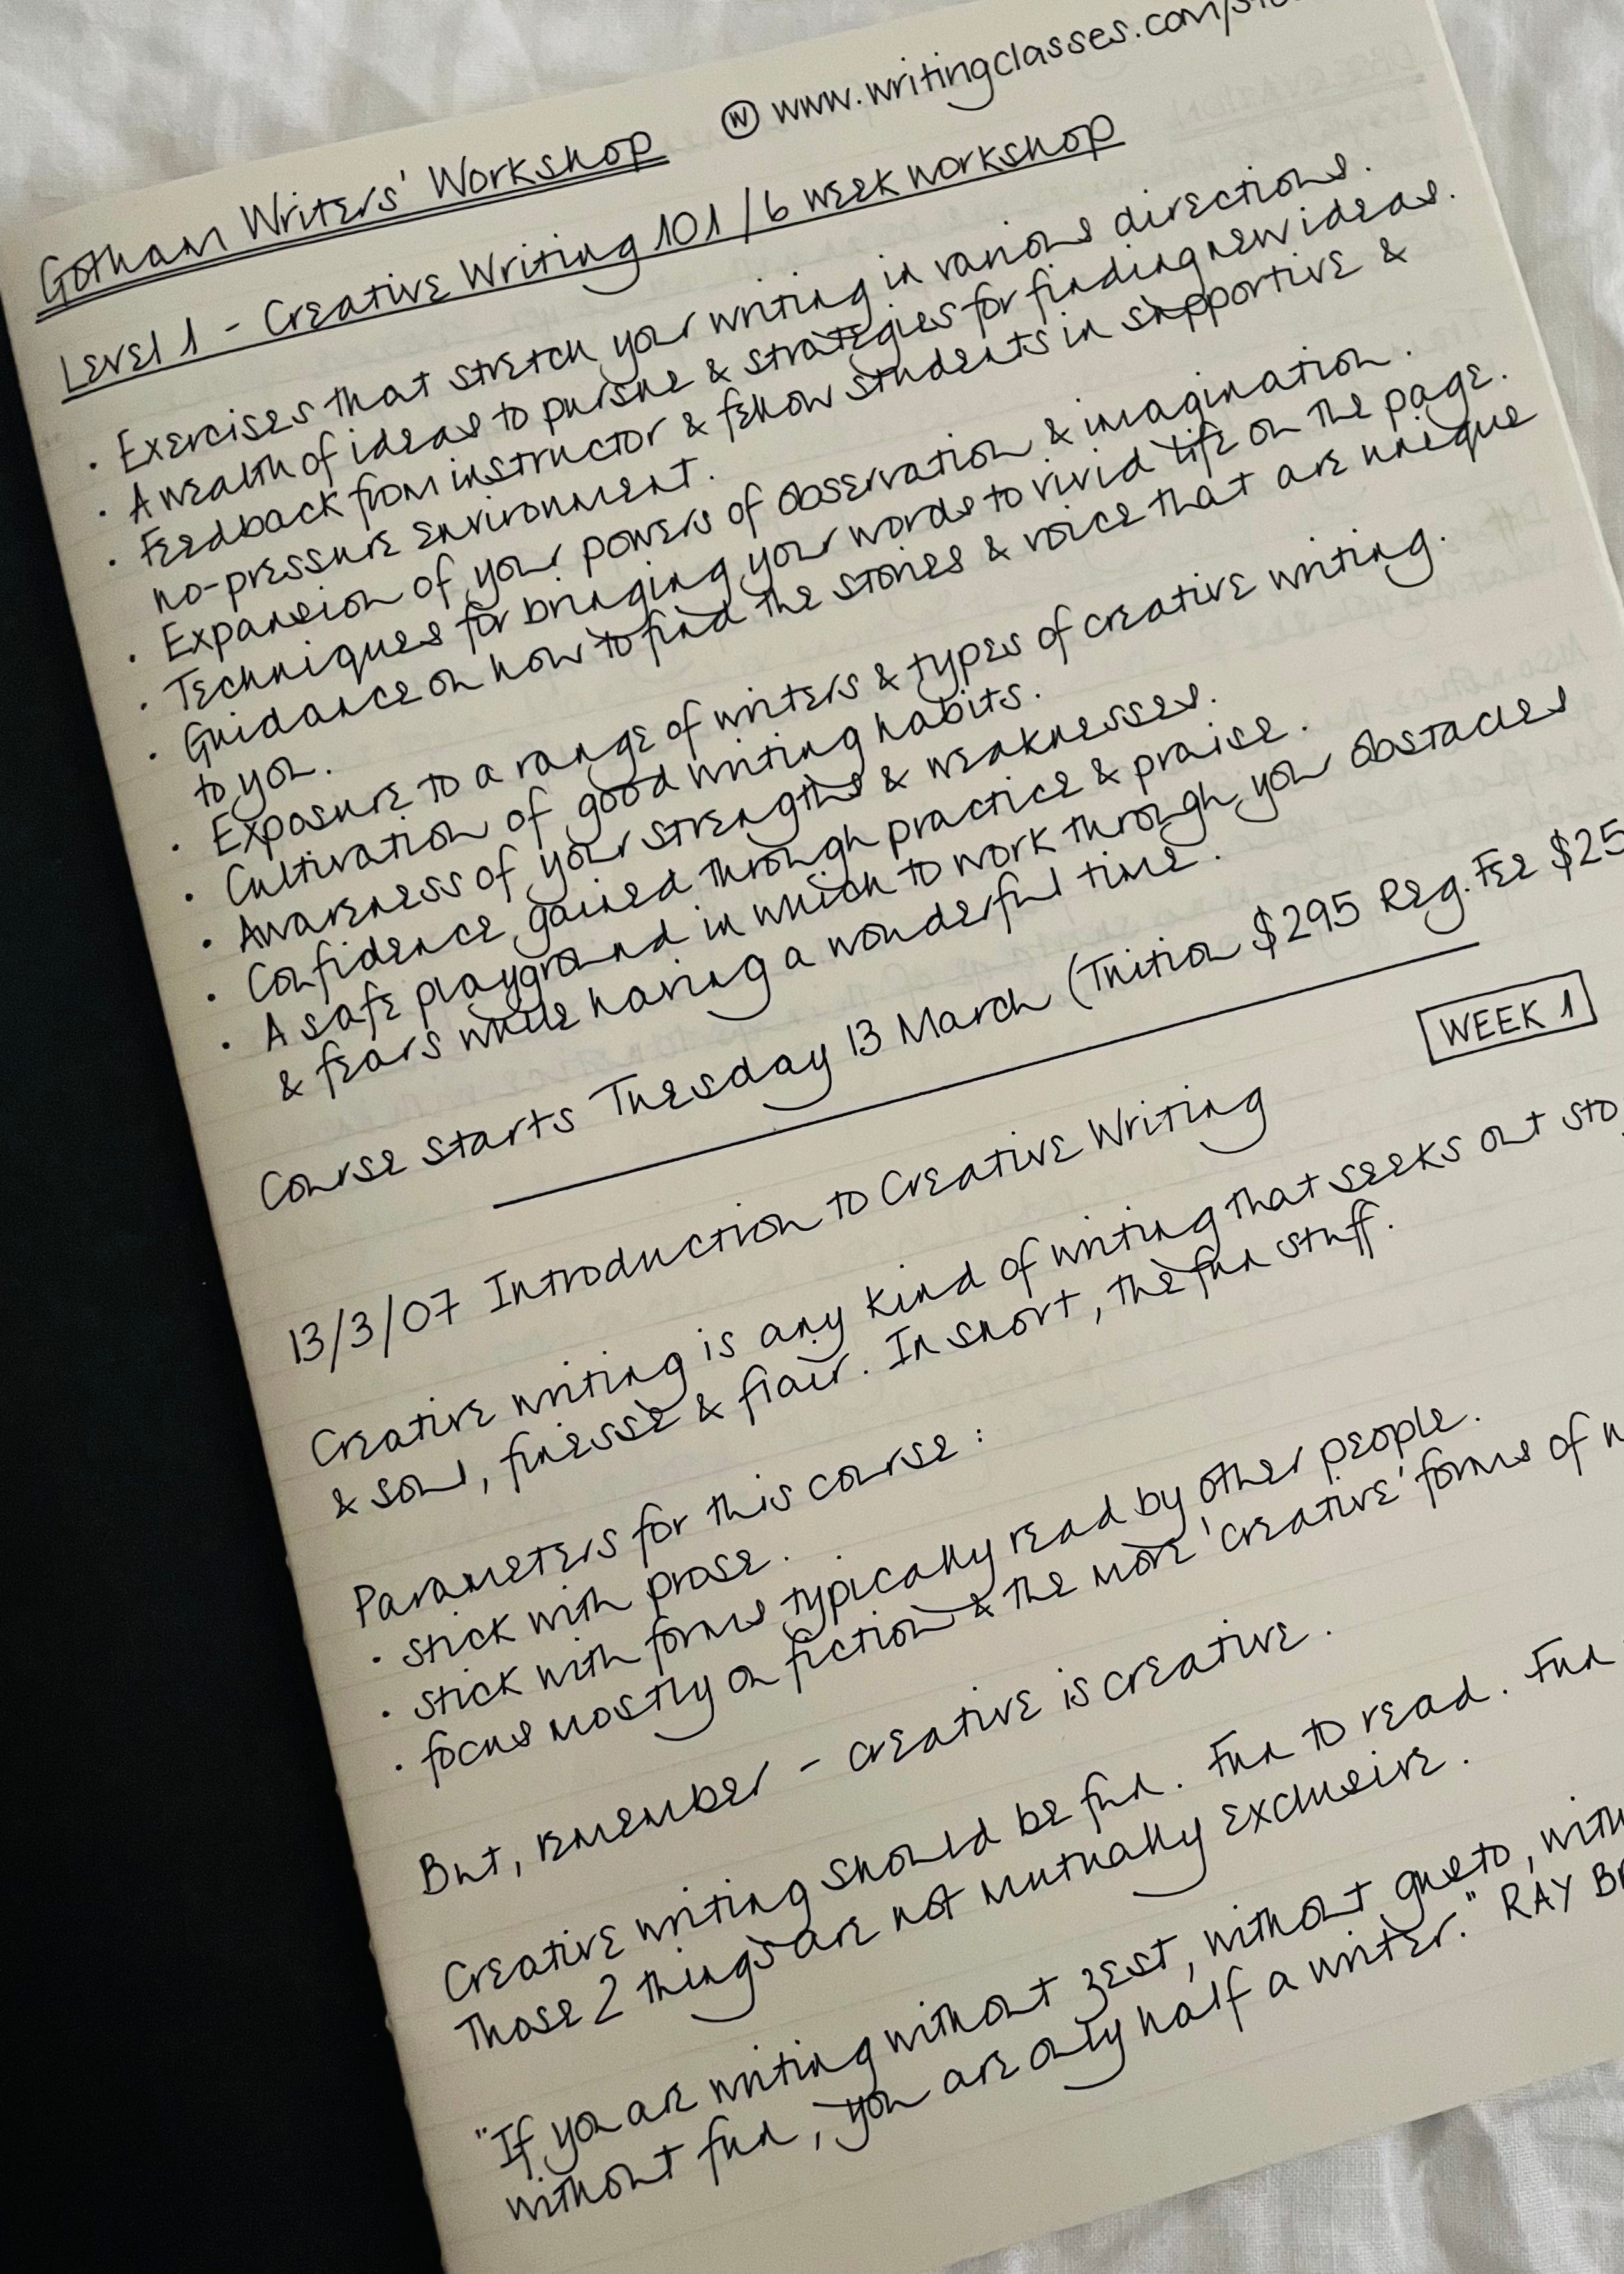 Gotham Writers' Workshop
Ⓦ www.writingclasses.com/
Level 1 - Creative Writing 101 / 6 week workshop
· Exercises that stretch your writing in various directions.
· A wealth of ideas to pursue & strategies for finding new ideas.
· Feedback from instructor & fellow students in supportive &
no-pressure environment.
· Expansion of your powers of observation & imagination.
· Techniques for bringing your words to vivid life on the page.
· Guidance on how to find the stories & voice that are unique
to you.
· Exposure to a range of writers & types of creative writing.
· Cultivation of good writing habits.
· Awareness of your strengths & weaknesses.
· Confidence gained through practice & praise.
· A safe playground in which to work through your obstacles
& fears while having a wonderful time.
Course starts Tuesday 13 March (Tuition $295 Reg. Fee $25
WEEK 1
13/3/07 Introduction to Creative Writing
Creative writing is any kind of writing that seeks out
& soul, finesse & flair. In short, the fun stuff.
Parameters for this course:
· stick with prose.
· stick with forms typically read by other people.
· focus mostly on fiction & the more 'creative' forms of
But, remember - creative is creative.
Creative writing should be fun. Fun to read. Fun
Those 2 things are not mutually exclusive.
"If you are writing without zest, without gusto, with
without fun, you are only half a writer." RAY